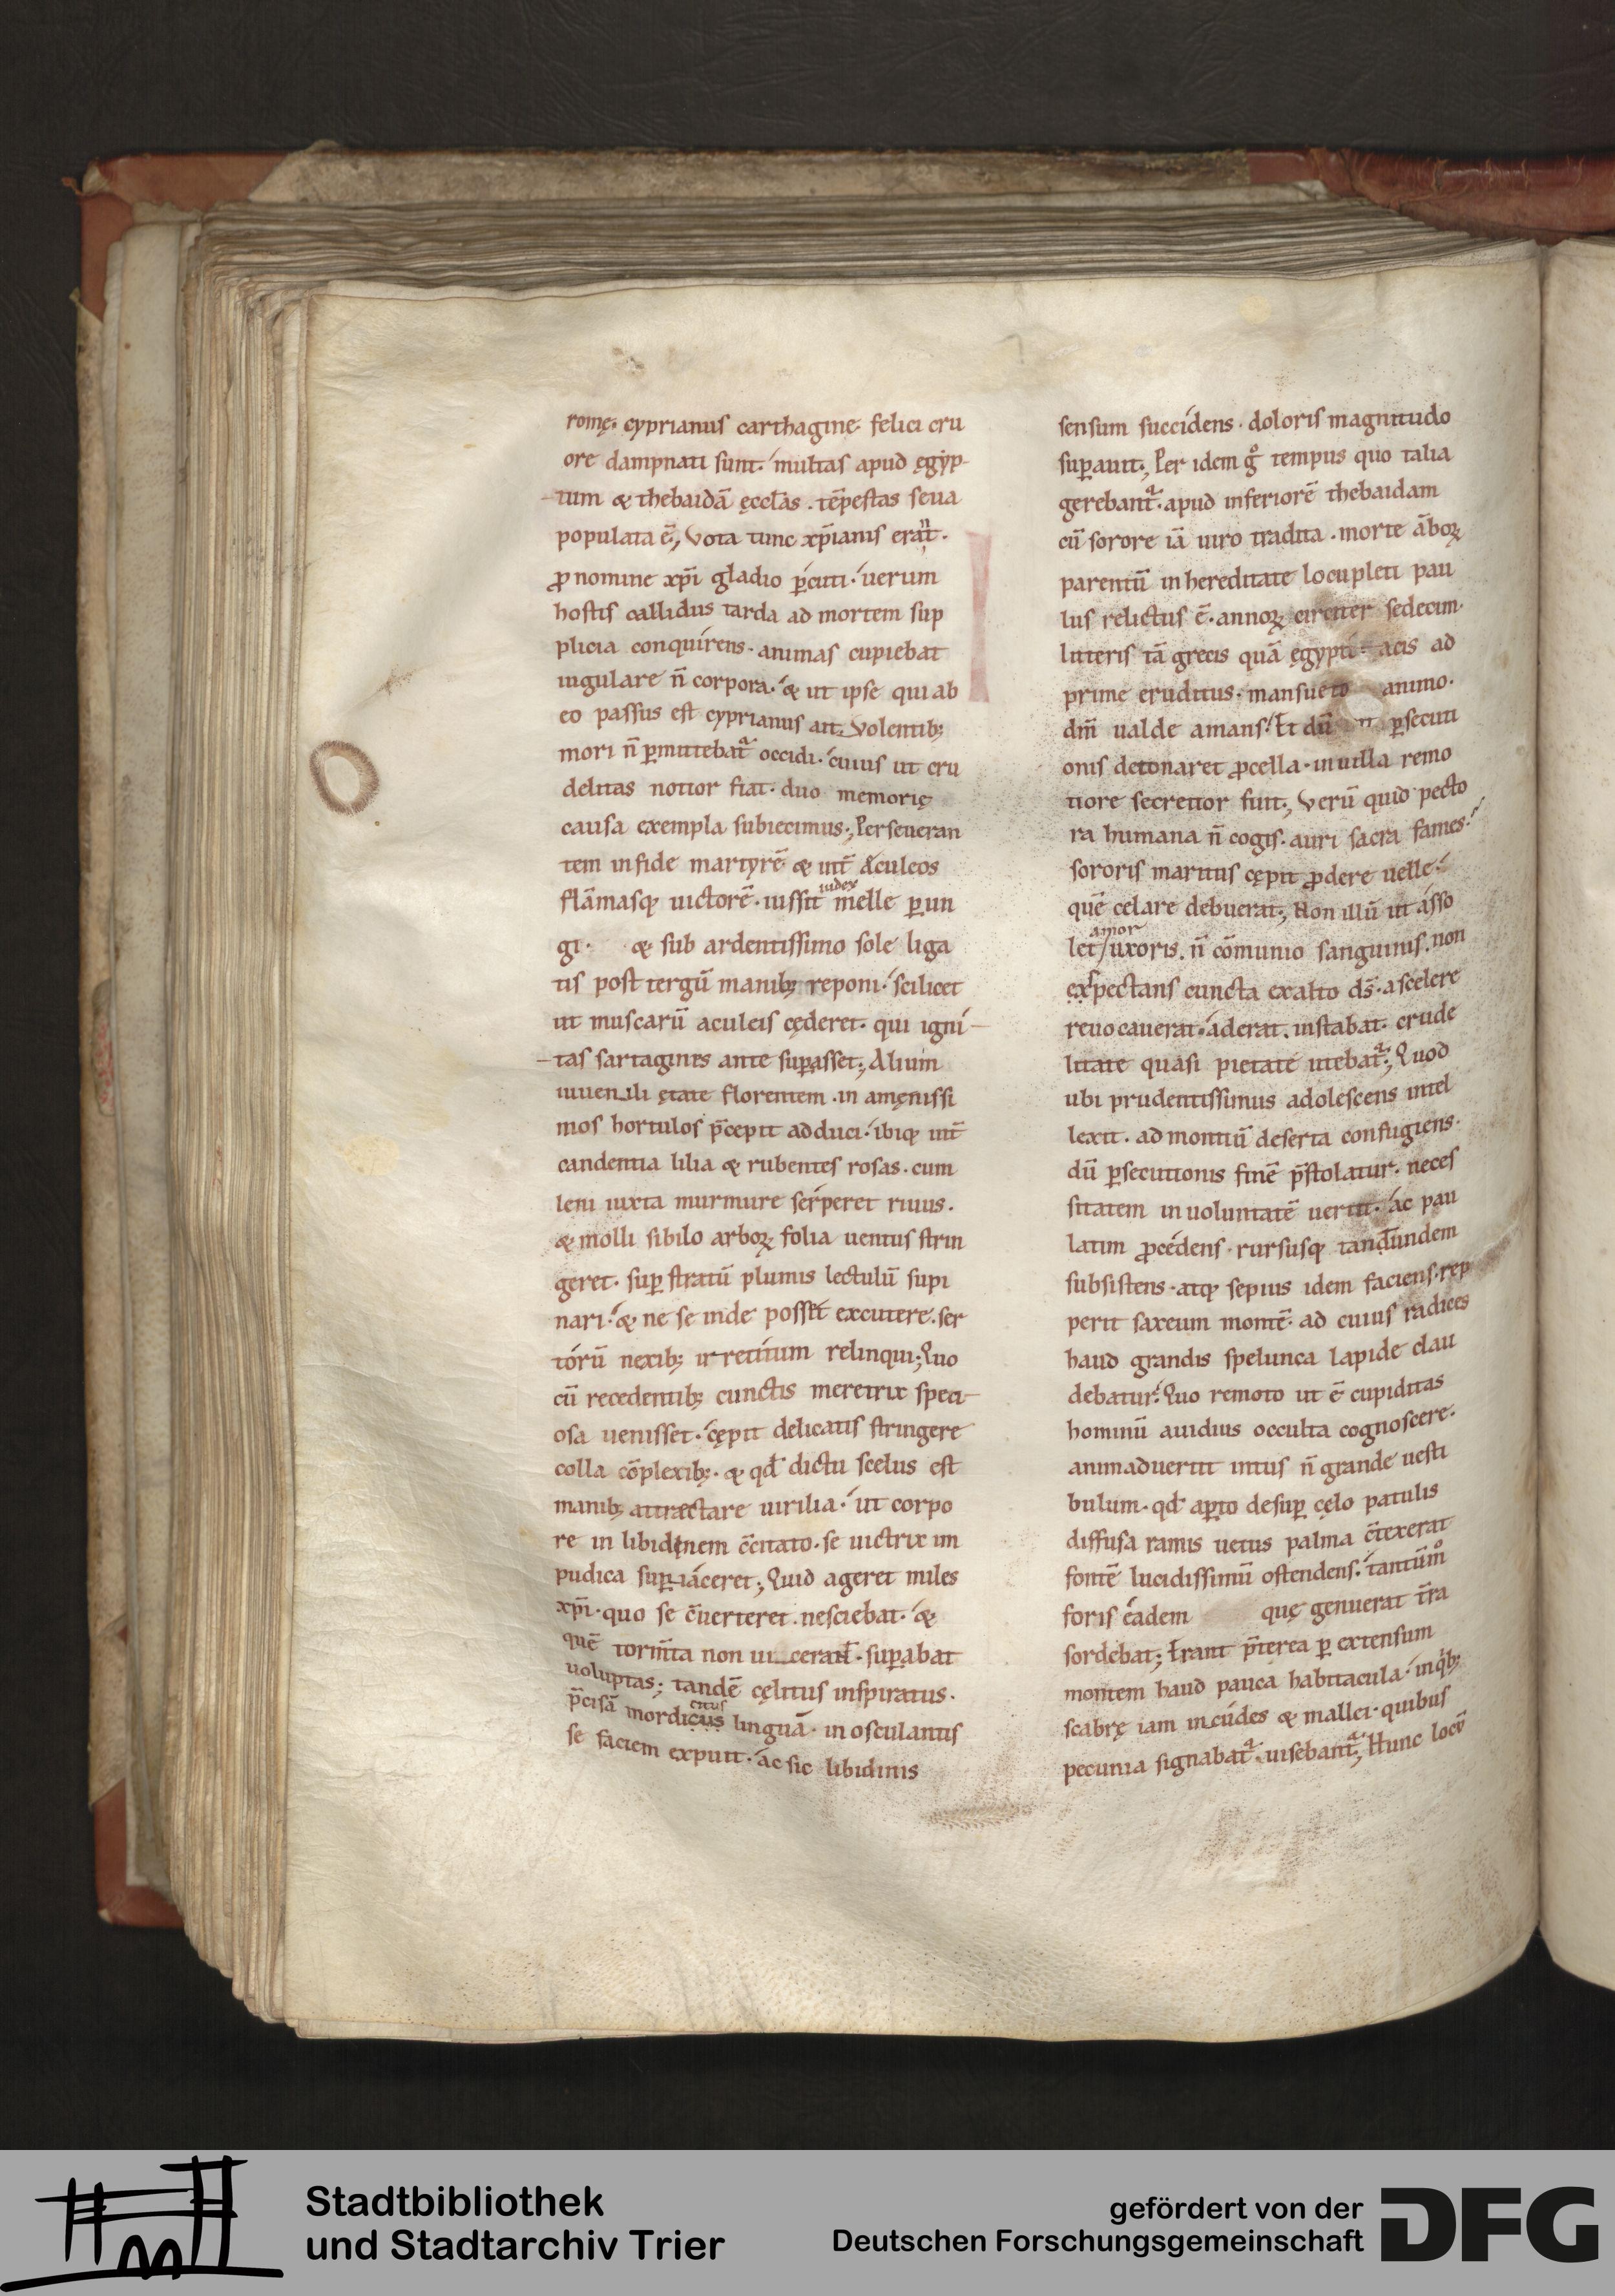 romę. cyprianus carthagine felici cru
ore dampnati sunt. multas apud ęgyp-
tum & thebaidā ęcclas. tēpestas seua
populata ē, Vota tunc xp̄ianis erat.
ꝓ nomine xp̄i gladio p̲cuti. uerum
hostis callidus tarda ad mortem sup
plicia conquirens. animas cupiebat
iugulare n̄ corpora. & ut ipse qui ab
eo passus est cyprianus ait. Volentib;
mori n̄ p̲mittebat᷑ occidi. cuius ut cru
delitas notior fiat. duo memorię
causa exempla subiecimus; Perseueran
tem in fide martyrē & int̄ aculeos
flāmasq; uictorē. iussit iudex melle p̲un
gi. & sub ardentissimo sole liga
tis post tergū manib; reponi. scilicet
ut muscarū aculeis cęderet. qui igni-
tas sartagines ante sup̲asset; Alium
iuuenili ętate florentem. in amęnissi
mos hortulos p̄cepit adduci. ibiq; int̄
candentia lilia & rubentes rosas. cum
leni iuxta murmure serperet riuus.
& molli sibilo arboꝝ folia uentus strin
geret. sup̲ stratū plumis lectulū supi
nari. & ne se inde posset excutere. ser
torū nexib; irretitum relinqui; Quo
cū recedentib; cunctis meretrix speci-
osa uenisset. cępit delicatis stringere
colla cōplexib;. & qđ dictu scelus est
manib; attrectare uirilia. ut corpo
re in libidinem c̄citato. se uictrix im
pudica sup̲iaceret; Quid ageret miles
xp̄i. quo se c̄uerteret nesciebat. &
quē torm̄ta non uicerant. sup̲abat
uoluptas; tandē cęlitus inspiratus.
p̄cisā mordicus citus linguā. in osculantis
se faciem expuit. ac sic libidinis
sensum succidens. doloris magnitudo
sup̲auit; Per idem gͦ tempus quo talia
gerebant᷑. apud inferiorē thebaidam
cū sorore iā uiro tradita. morte āboꝝ
parentū in hereditate locupleti pau
lus relictus ē. annoꝝ circiter sedecim.
litteris tā grecis quā ęgyptiacis ad
prime eruditus. mansueto animo.
dm̄ ualde amans. Et dū p̲secuti
onis detonaret ꝓcella. in uilla remo
tiore secretior fuit; Verū quid pecto
ra humana n̄ cogis. auri sacra fames.
sororis maritus cępit ꝓdere uelle.
quē celare debuerat; Non illū ut asso
let amor uxoris. n̄ cōmunio sanguinis. non
expectans cuncta ex alto ds̄. a scelere
reuocauerat. aderat. instabat. crude
litate quasi pietate utebat᷑; Quod
ubi prudentissimus adolescens intel
lexit. ad montiū deserta confugiens.
dū p̲secutionis finē p̄stolatur. neces
sitatem in uoluntatē uertit. ac pau
latim ꝓcedens. rursusq; tantundem
subsistens. atq; sepius idem faciens. rep
perit saxeum montē. ad cuius radices
haud grandis spelunca lapide clau
debatur. Quo remoto ut ē cupiditas
hominū auidius occulta cognoscere.
animaduertit intus n̄ grande uesti
bulum. qđ ap̲to desup̲ cęlo patulis
diffusa ramis uetus palma c̄texerat
fontē lucidissimū ostendens. tantūmͦ
foris eadem quę genuerat t̄ra
sordebat; Erant p̄terea p̲ extensum
montem haud pauca habitacula. in q̇b;
scabrę iam incudes & mallei. quibus
pecunia signabat᷑. uisebant᷑; Hunc locū
Stadtbibliothek
und Stadtarchiv Trier
gefördert von der
Deutschen Forschungsgemeinschaft
DFG